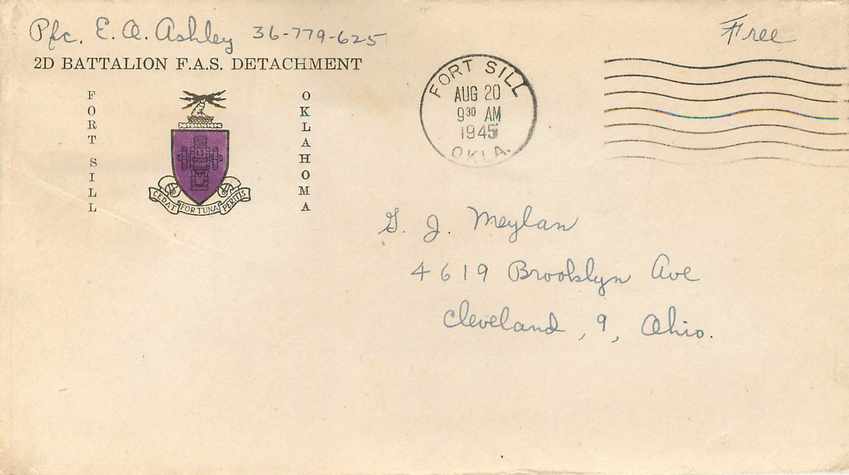 Pfc. E. A. Ashley 36-779-625
2D BATTALION F.A.S. DETACHMENT
FORT SILL
OKLAHOMA
CEDAT FORTUNA PERITIS
FORT SILL
AUG 20
9 30 AM
1945
OKLA.
Free
G. J. Meylan
4619 Brooklyn Ave
Cleveland, 9, Ohio.